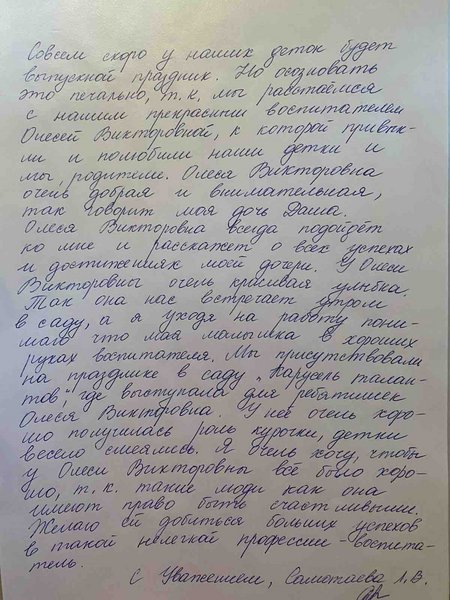 Совсем скоро у наших деток будет
выпускной праздник. Но осозновать
это печально, т.к. мы расстаёмся
с нашим прекрасным воспитателем
Олесей Викторовной, к которой привык-
ли и полюбили наши детки и
мы, родители. Олеся Викторовна
очень добрая и внимательная,
так говорит моя дочь Даша.
Олеся Викторовна всегда подойдёт
ко мне и расскажет о всех успехах
и достижениях моей дочери. У Олеси
Викторовны очень красивая улыбка.
Так она нас встречает утром
в саду, а я уходя на работу пони-
маю что моя малышка в хороших
руках воспитателя. Мы присутствовали
на празднике в саду „Карусель талан-
тов", где выступала для ребятишек
Олеся Викторовна. У неё очень хоро-
шо получилась роль курочки, детки
весело смеялись. Я очень хочу, чтобы
у Олеси Викторовны всё было хоро-
шо, т.к. такие люди как она
имеют право быть счастливыми.
Желаю ей добиться больших успехов
в такой нелегкой профессии - воспита-
тель.
С Уважением, Самотаева Л.В.